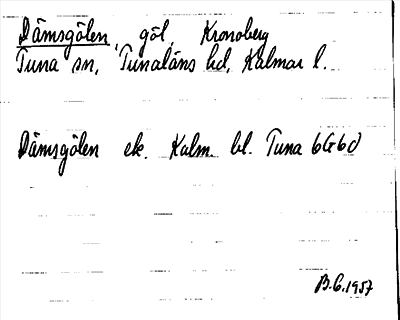 Dämsgölen, göl, Kronoberg
Tuna sn, Tunaläns hd, Kalmar l.
Dämsgölen ek. Kalm. bl. Tuna 6G6d
B.G.1957